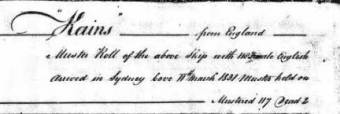 "Kains from England
Muster Roll of the above Ship with Female English
arrived in Sydney Cove 11th March 1831 Muster held on
Mustered 117 Dead 2